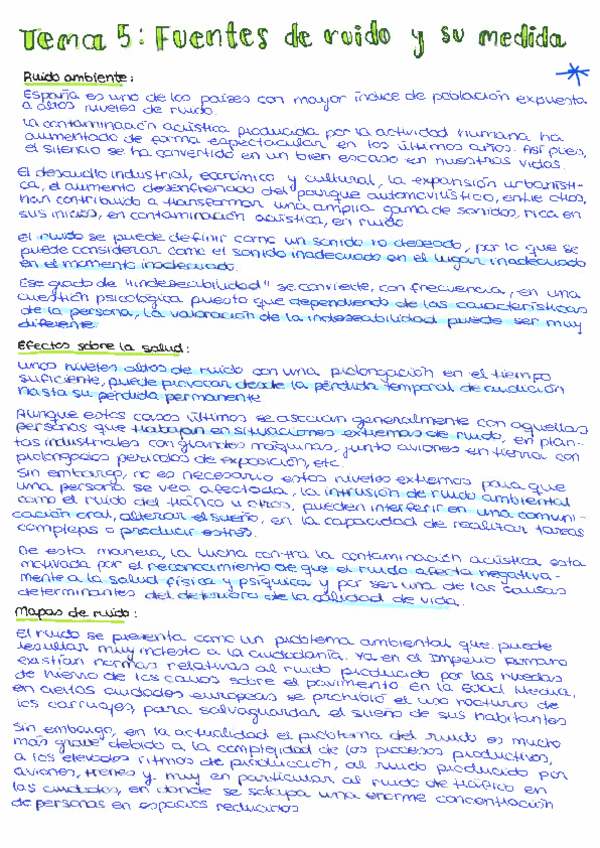 Tema 5: Fuentes de ruido y su medida
Ruido ambiente:
España es uno de los países con mayor índice de población expuesta
a altos niveles de ruido.
La contaminación acústica producida por la actividad humana ha
aumentado de forma espectacular en los últimos años. Así pues,
el silencio se ha convertido en un bien escaso en nuestras vidas.
El desarrollo industrial, económico y cultural, la expansión urbanísti-
ca, el aumento desenfrenado del parque automovilístico, entre otros,
han contribuido a transformar una amplia gama de sonidos, rica en
sus inicios, en contaminación acústica, en ruido
El ruido se puede definir como un sonido no deseado, por lo que se
puede considerar como el sonido inadecuado en el lugar inadecuado
en el momento inadecuado.
Ese grado de "indeseabilidad" se convierte, con frecuencia, en una
cuestión psicológica puesto que dependiendo de las características
de la persona, la valoración de la indeseabilidad puede ser muy
diferente
Efectos sobre la salud:
Unos niveles altos de ruido con una prolongación en el tiempo
suficiente, puede provocar desde la pérdida temporal de audición
hasta su pérdida permanente
Aunque estos casos últimos se asocian generalmente con aquellas
personas que trabajan en situaciones extremas de ruido, en plan-
tas industriales con grandes máquinas, junto aviones en tierra con
prolongados períodos de exposición, etc.
Sin embargo, no es necesario estos niveles extremos para que
una persona se vea afectada, la intrusión de ruido ambiental
como el ruido del tráfico u otros, pueden interferir en una comuni-
cación oral, alterar el sueño, en la capacidad de realizar tareas
complejas o producir estrés.
De esta manera, la lucha contra la contaminación acústica esta
motivada por el reconocimiento de que el ruido afecta negativa-
mente a la salud física y psíquica y por ser una de las causas
determinantes del deterioro de la calidad de vida.
Mapas de ruido:
El ruido se presenta como un problema ambiental que puede
resultar muy molesto a la ciudadanía. Ya en el Imperio Romano
existían normas relativas al ruido producido por las ruedas
de hierro de los carros sobre el pavimento en la Edad Media,
en ciertas ciudades europeas se prohibió el uso nocturno de
los carruajes, para salvaguardar el sueño de sus habitantes
Sin embargo, en la actualidad el problema del ruido es mucho
más grave debido a la complejidad de los procesos productivos,
a los elevados ritmos de producción, al ruido producido por
aviones, trenes y muy en particular al ruido de tráfico en
las ciudades, en donde se solapa una enorme concentración
de personas en espacios reducidos